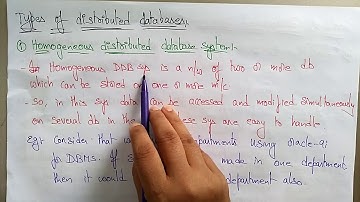 Types of distributed databases
① Homogeneous distributed database system:-
- Homogeneous DDB sys is a n/w of two or more db
which can be stored on one or more m/c
- So, in this sys data can be accessed and modified simultaneously
on several db in the these sys are easy to handle
Eg:- Consider that departments using oracle-9i
for DBMS. If made in one department
then it would department also.